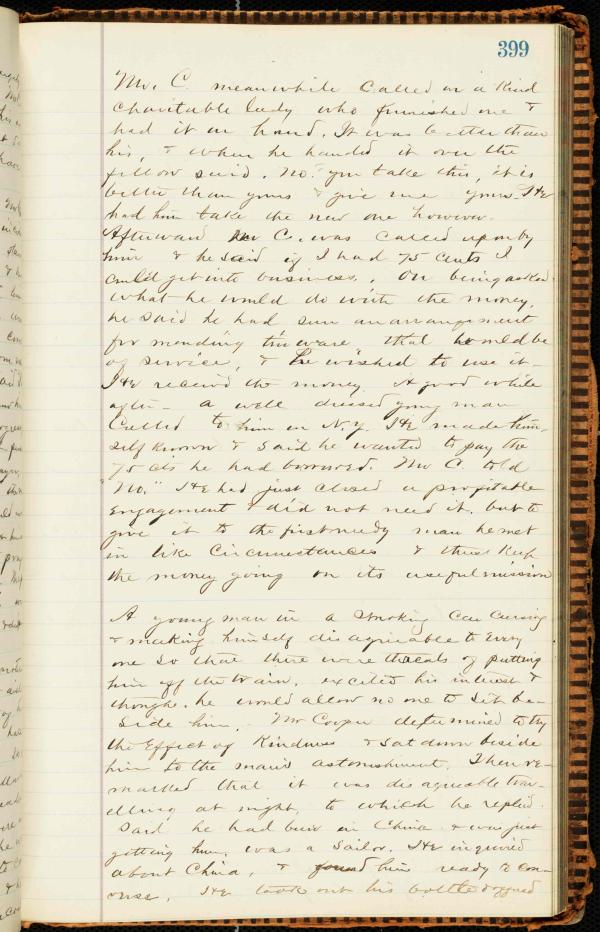 399
Mr. C. meanwhile called on a kind
charitable lady who furnished one &
had it in hand. It was better than
his, & when he handed it over the
fellow said. No. you take this, it is
better than yours & give me yours. He
had him take the new one however.
Afterward Mr C. was called upon by
him & he said if I had 75 cents I
could get into business. On being asked
what he would do with the money,
he said he had seen an arrangement
for mending tin ware that would be
of service, & he wished to use it.
He received the money. A good while
after - a well dressed young man
called to him in N.Y. He made him-
self known & said he wanted to pay the
75 cts he had borrowed. Mr C. told
"No." He had just closed a profitable
engagement & did not need it. but to
give it to the first needy man he met
in like circumstances & thus keep
the money going on its useful mission
A young man in a smoking car cursing
& making himself disagreeable to every
one so that there were threats of putting
him off the train, excited his interest &
though he would allow no one to sit be-
side him, Mr Cooper determined to try
the effect of kindness & sat down beside
him to the man's astonishment. Then re-
marked that it was disagreeable trav-
elling at night, to which he replied.
Said he had been in China & was just
getting home, was a sailor. He inquired
about China, & found him ready to con-
verse. He took out his bottle & offered